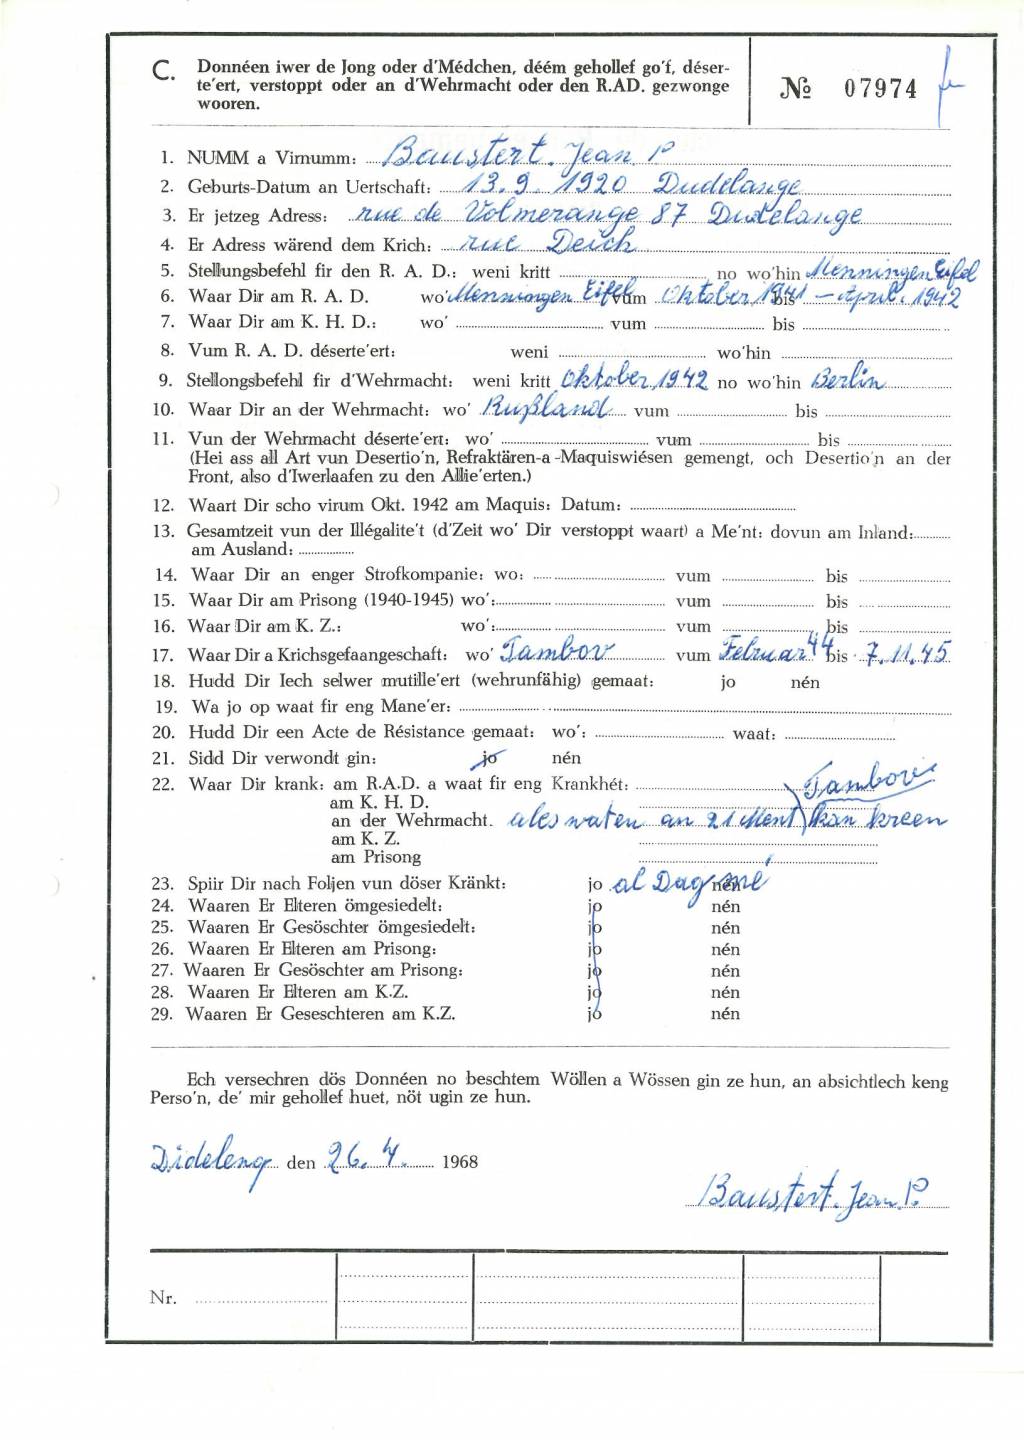 C. Donnéen iwer de Jong oder d'Médchen, déém gehollef go'f, déser-
te'ert, verstoppt oder an d'Wehrmacht oder den R.AD. gezwonge
wooren.
№ 07974
1. NUMM a Virnumm: Baustert. Jean P
2. Geburts-Datum an Uertschaft: 13.9.1920 Dudelange
3. Er jetzeg Adress: rue de Volmerange 87 Dudelange
4. Er Adress wärend dem Krich: rue Deich
5. Stellungsbefehl fir den R. A. D.: weni kritt no wo'hin Menningen Eifel
6. Waar Dir am R. A. D. wo' Menningen Eifel vum Oktober 1941 bis - April. 1942
7. Waar Dir am K. H. D.: wo' vum bis
8. Vum R. A. D. déserte'ert: weni wo'hin
9. Stellongsbefehl fir d'Wehrmacht: weni kritt Oktober 1942 no wo'hin Berlin
10. Waar Dir an der Wehrmacht: wo' Rußland vum bis
11. Vun der Wehrmacht déserte'ert: wo' vum bis
(Hei ass all Art vun Desertio'n, Refraktären-a-Maquiswiésen gemengt, och Desertio'n an der
Front, also d'Iwerlaafen zu den Allie'erten.)
12. Waart Dir scho virum Okt. 1942 am Maquis: Datum:
13. Gesamtzeit vun der Illégalite't (d'Zeit wo' Dir verstoppt waart) a Me'nt: dovun am Inland:
am Ausland:
14. Waar Dir an enger Strofkompanie: wo: vum bis
15. Waar Dir am Prisong (1940-1945) wo': vum bis
16. Waar Dir am K. Z.: wo': vum bis
17. Waar Dir a Krichsgefaangeschaft: wo' Tambov vum Februar 44 bis 7.11.45
18. Hudd Dir Iech selwer mutille'ert (wehrunfähig) gemaat: jo nén
19. Wa jo op waat fir eng Mane'er:
20. Hudd Dir een Acte de Résistance gemaat: wo': waat:
21. Sidd Dir verwondt gin: jo nén
22. Waar Dir krank: am R.A.D. a waat fir eng Krankhét: Tambov
am K. H. D.
an der Wehrmacht. ales waten an 21 Ment kan kreen
am K. Z.
am Prisong
23. Spiir Dir nach Foljen vun döser Kränkt: jo al Dag mé nén
24. Waaren Er Elteren ömgesiedelt: jo nén
25. Waaren Er Gesöschter ömgesiedelt: jo nén
26. Waaren Er Elteren am Prisong: jo nén
27. Waaren Er Gesöschter am Prisong: jo nén
28. Waaren Er Elteren am K.Z. jo nén
29. Waaren Er Geseschteren am K.Z. jo nén
Ech versechren dös Donnéen no beschtem Wöllen a Wössen gin ze hun, an absichtlech keng
Perso'n, de' mir gehollef huet, nöt ugin ze hun.
Dideleng den 26. 4. 1968
Baustert. Jean P.
Nr.